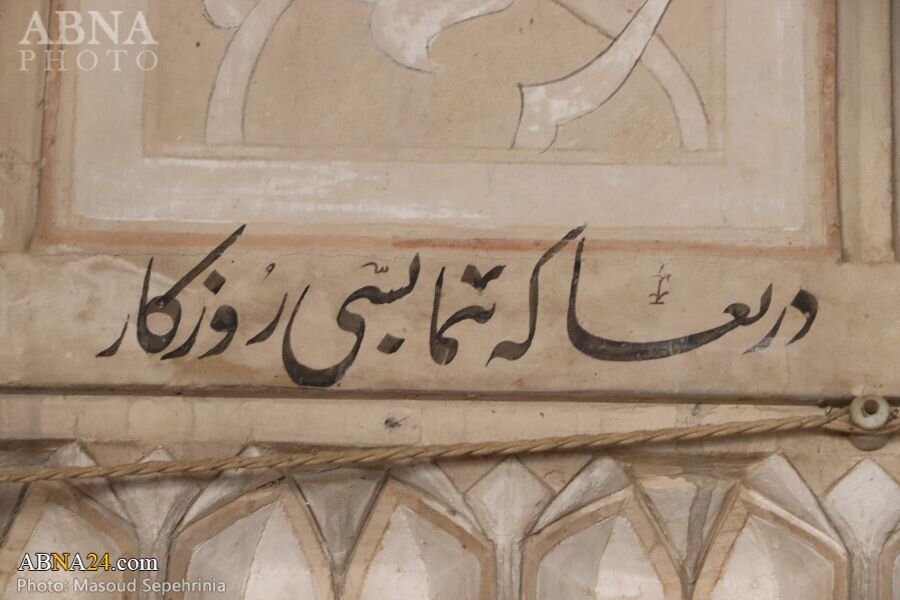 ABNA
PHOTO
دریغا که بی ما بسی روزگار
ABNA24.com
Photo: Masoud Sepehrinia